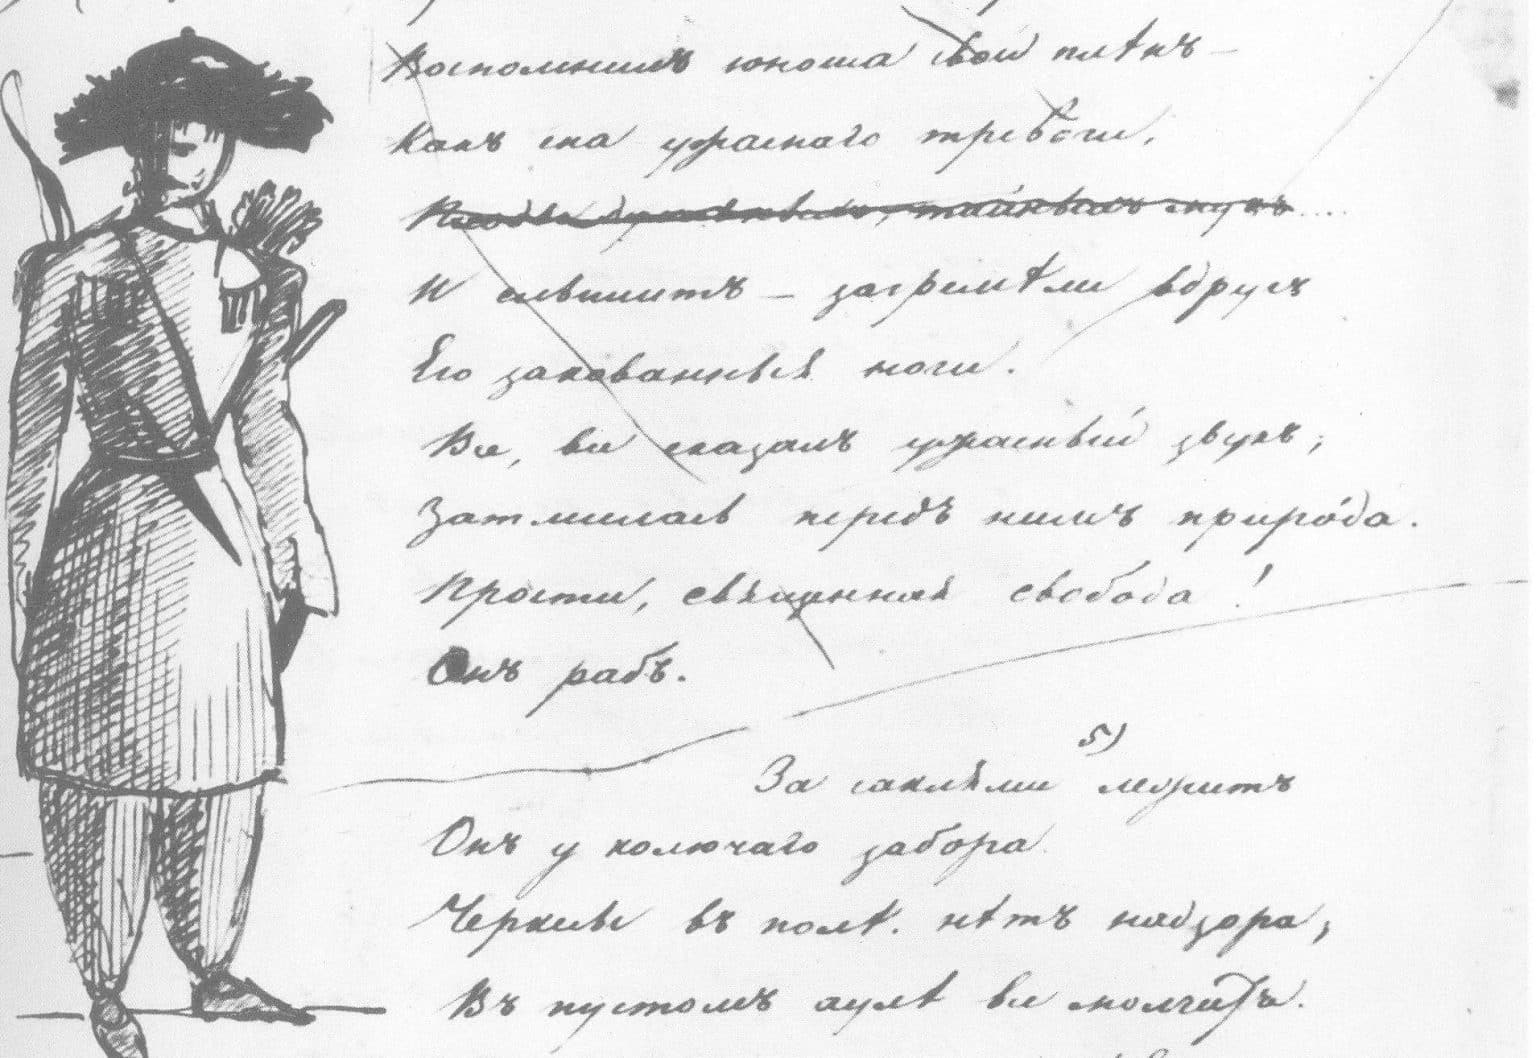 Воспомнилъ юноша свой плѣнъ —
Какъ сна ужаснаго тревоги,
тайныхъ мукъ....
И слышитъ — загремѣли вдругъ
Его закованныя ноги.
Все, все сказалъ ужасный звукъ;
Затмилась передъ нимъ природа.
Прости, священная свобода!
Онъ рабъ.
За саклями 5) лежитъ
Онъ у колючаго забора.
Черкесы въ полѣ. нѣтъ надзора;
Въ пустомъ аулѣ все молчитъ.